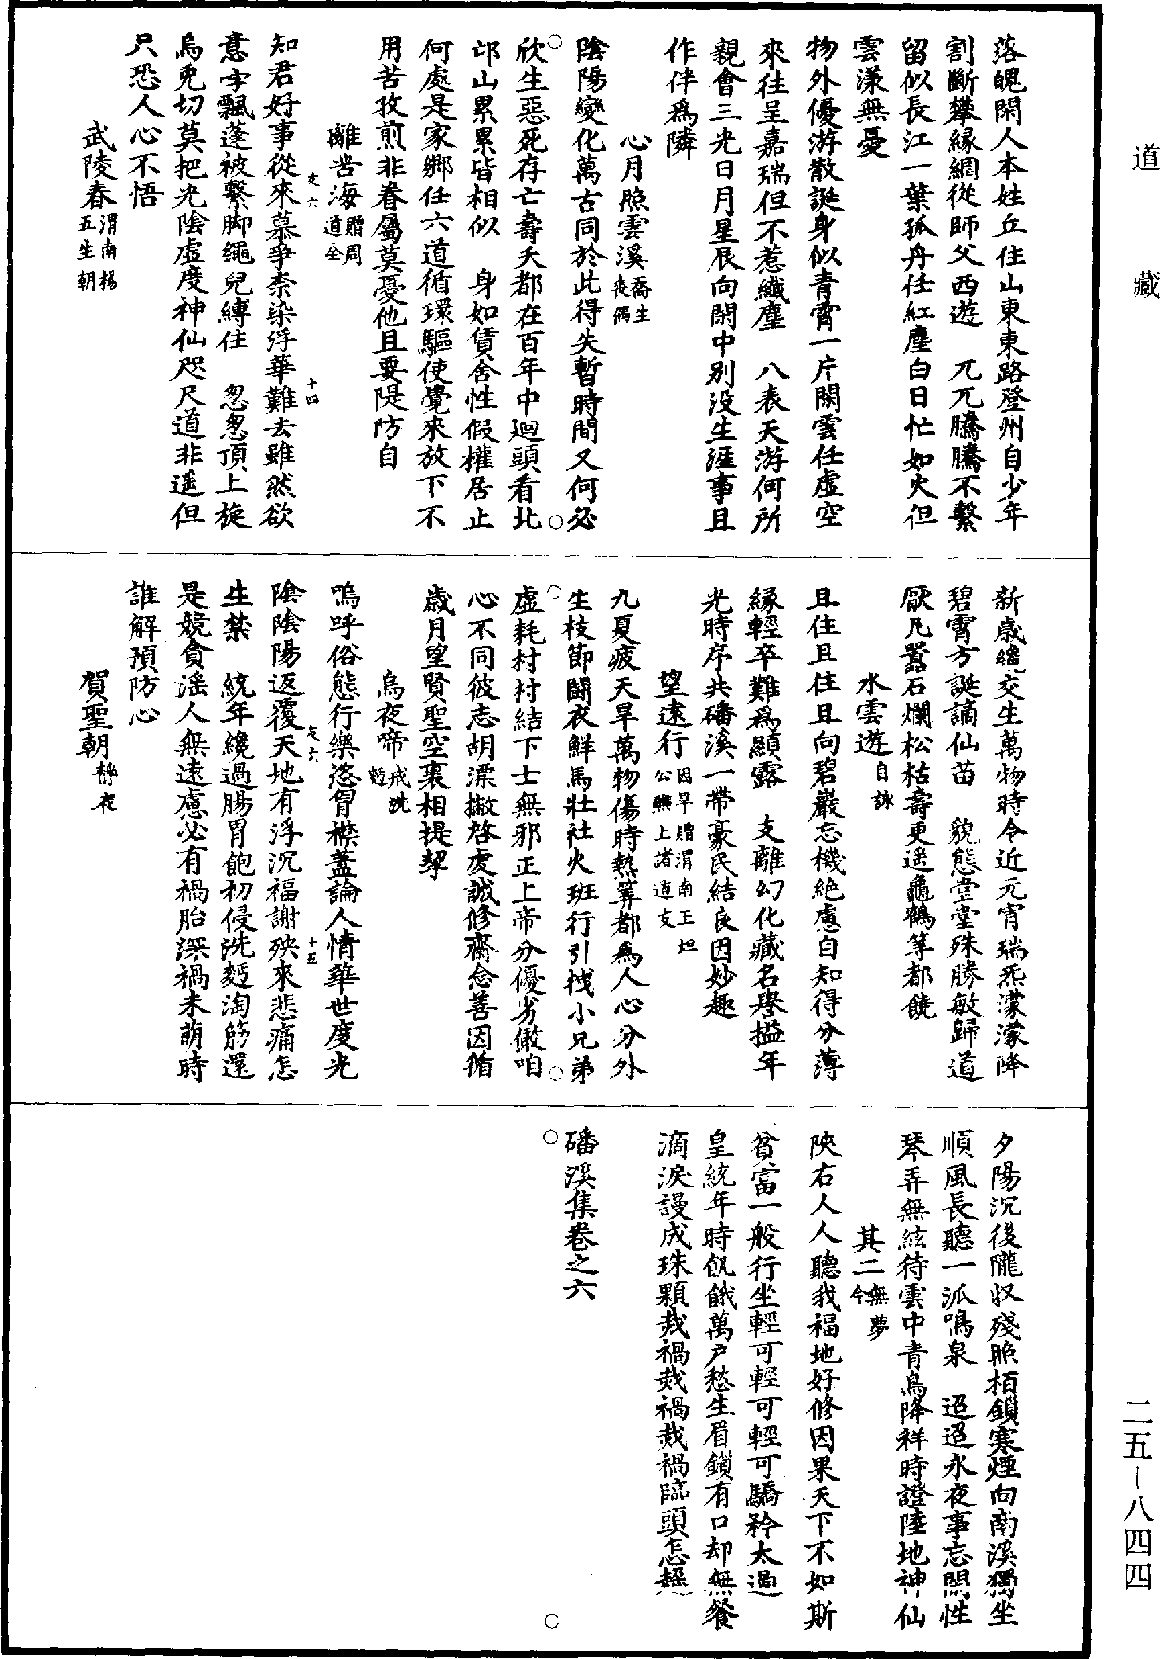 道藏
落魄閑人本姓丘住山東東路登州自少年
割斷攀緣網從師父西遊　兀兀騰騰不繫
留似長江一葉孤舟任紅塵白日忙如火但
雲漾無憂
物外優游散誕身似青霄一片閑雲任虛空
來往呈嘉瑞但不惹纖塵　八表天游何所
親會三光日月星辰向閑中別沒生涯事且
作伴為隣
心月照雲溪喬生喪偶
陰陽變化萬古同於此得失暫時間又何必
欣生惡死存亡壽夭都在百年中迴頭看北
邙山累累皆相似　身如賃舍性假權居止
何處是家鄉任六道循環驅使覺來放下不
用苦孜煎非眷屬莫憂他且要隄防自
離苦海贈周道全
知君好事從來慕爭柰染浮華難去雖然欲
意字飄蓬被繫脚繩兒縛住　忽忽頂上旋
烏兔切莫把光陰虛度神仙咫尺道非遥但
只恐人心不悟
武陵春渭南楊五生朝
新歲纔交生萬物時令近元宵瑞炁濛濛降
碧霄方誕謫仙苗　貌態堂堂殊勝敏歸道
厭凡囂石爛松枯壽更遥龜鶴筭都饒
水雲遊自詠
且住且住且向碧巖忘機絕慮自知得分薄
緣輕卒難為顯露　支離幻化藏名譽搵年
光時序共磻溪一帶豪民結良因妙趣
望遠行因旱贈渭南王坦公熱上諸道友
九夏疲天旱萬物傷時熱筭都為人心分外
生枝節鬭衣鮮馬壯社火班行引拽小兄弟
虛耗村村結下士無邪正上帝分優劣儆咱
心不同彼志胡漂撇啓虔誠修齋念善因循
歲月望賢聖空裏相提挈
烏夜啼戒詵遊
嗚呼俗態行樂恣胷襟蓋論人情華世度光
陰陰陽返覆天地有浮沉福謝殃來悲痛怎
生禁　統年纔過腸胃飽初侵洗麪淘觔還
是競貪滛人無遠慮必有禍胎深禍未萌時
誰解預防心
賀聖朝靜夜
夕陽沉後隴收殘照栢鎖寒煙向南溪獨坐
順風長聽一派鳴泉　迢迢永夜事忘閑性
琴弄無絃待雲中青鳥降祥時證陸地神仙
其二無夢令
陝右人人聽我福地好修因果天下不如斯
貧富一般行坐輕可輕可輕可驕矜太過
皇統年時飢餓萬户愁生眉鎖有口却無餐
滴淚謾成珠顆哉禍哉禍哉禍臨頭怎趓
磻溪集卷之六
二五－八四四